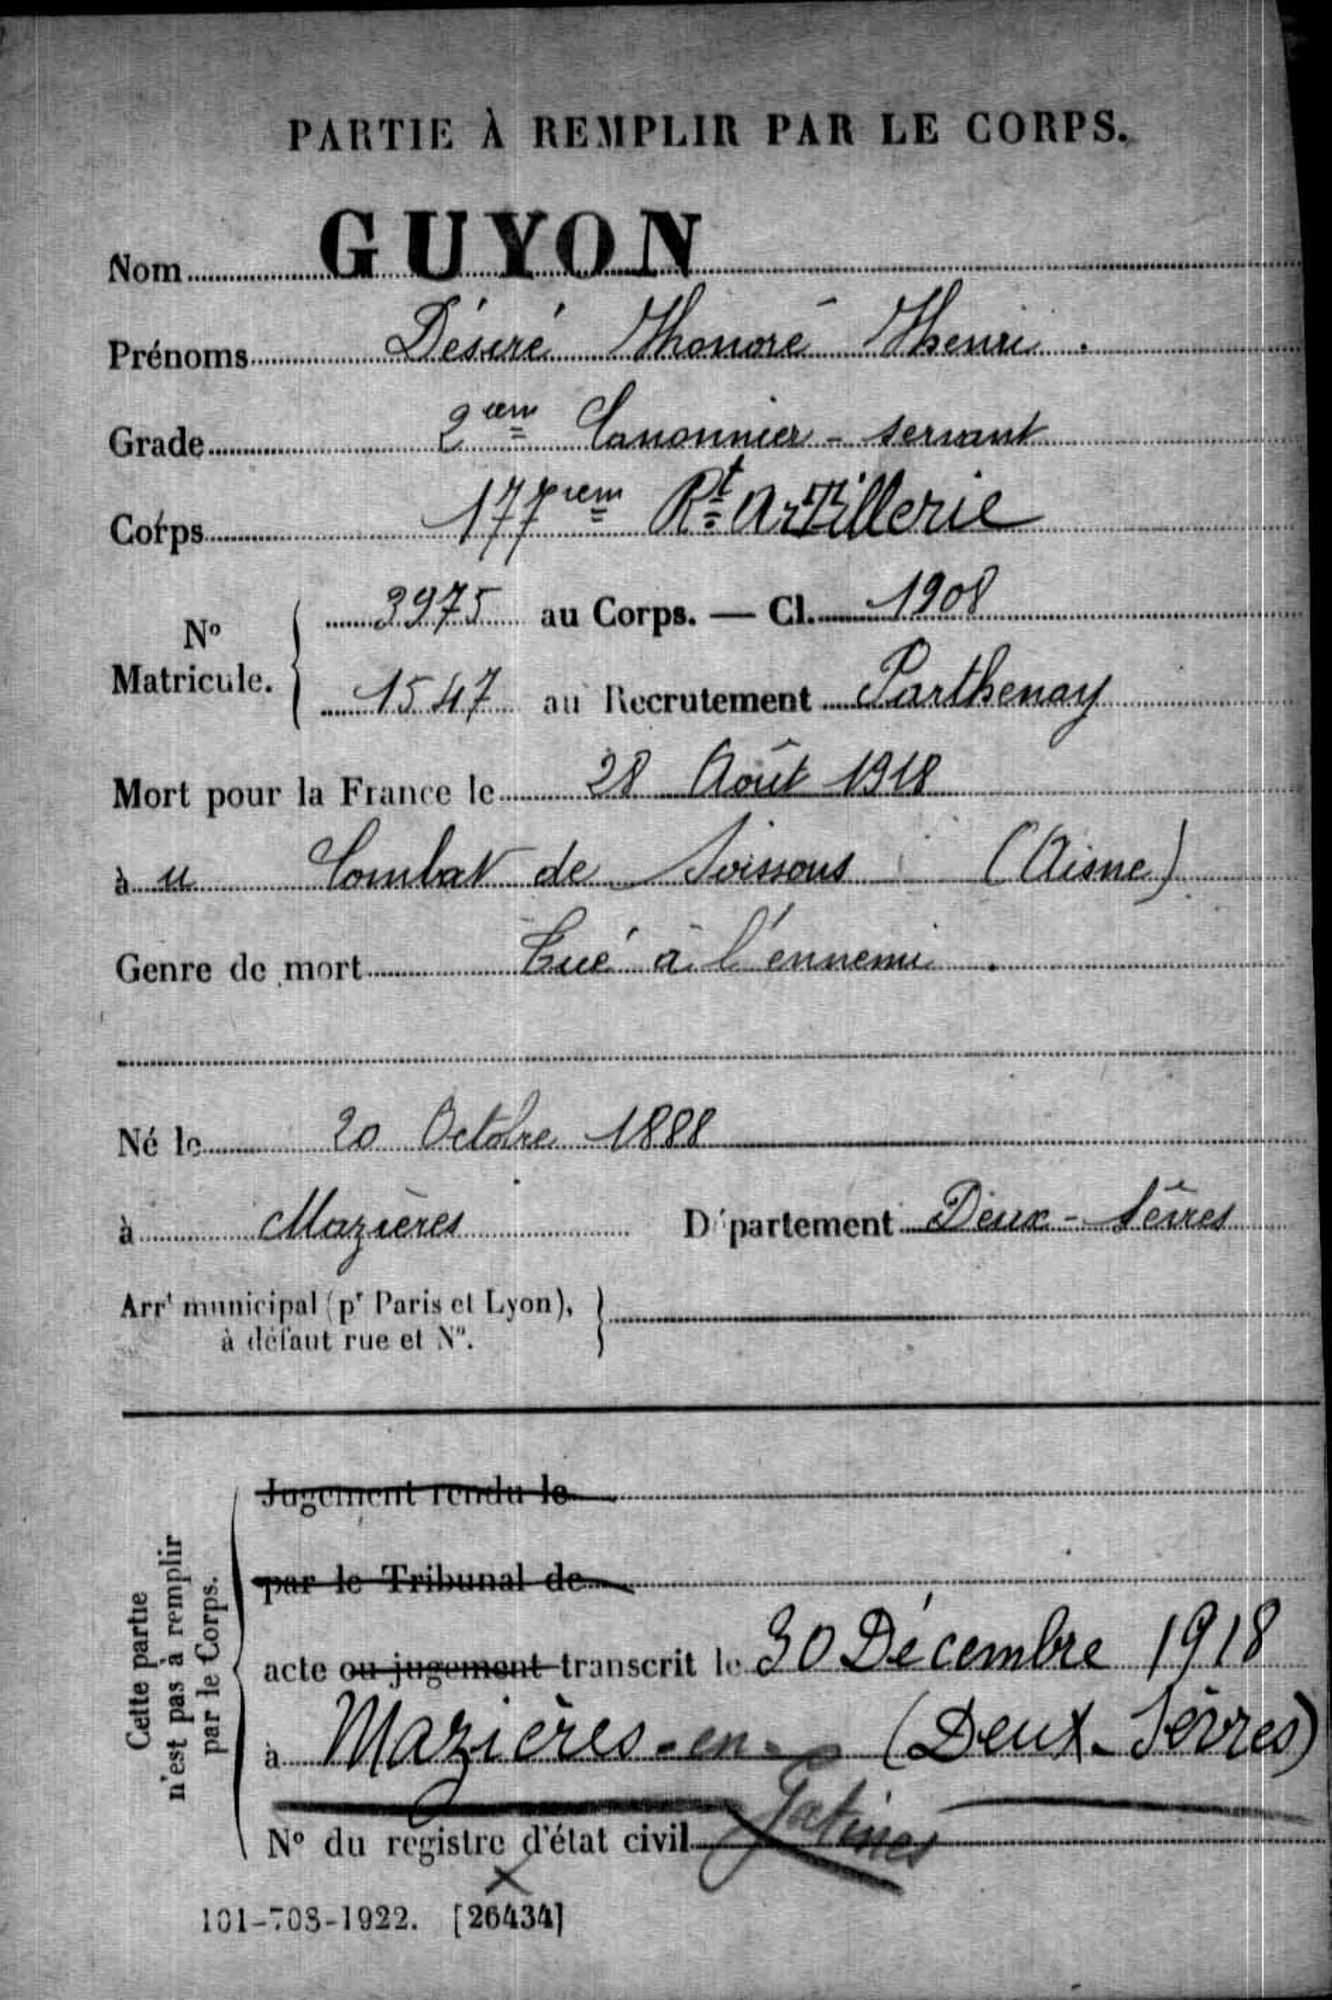 PARTIE À REMPLIR PAR LE CORPS.
Nom GUYON
Prénoms Désiré Hhonoré Hhenri.
Grade 2em Canonnier - servant
Corps 177iem Rt Artillerie
No Matricule. 3975 au Corps. — Cl. 1908
1547 au Recrutement Parthenay
Mort pour la France le 28 Août 1918
à u Combat de Soissons (Aisne)
Genre de mort Tué à l'ennemi.
Né le 20 Octobre 1888
à Mazières Département Deux-Sèvres
Arrt municipal (pr Paris et Lyon),
à défaut rue et No.
Cette partie
n'est pas à remplir
par le Corps.
Jugement rendu le
par le Tribunal de
acte ou jugement transcrit le 30 Décembre 1918
à Mazières-en- (Deux-Sèvres)
Gatines
No du registre d'état civil
101-708-1922. [26434]